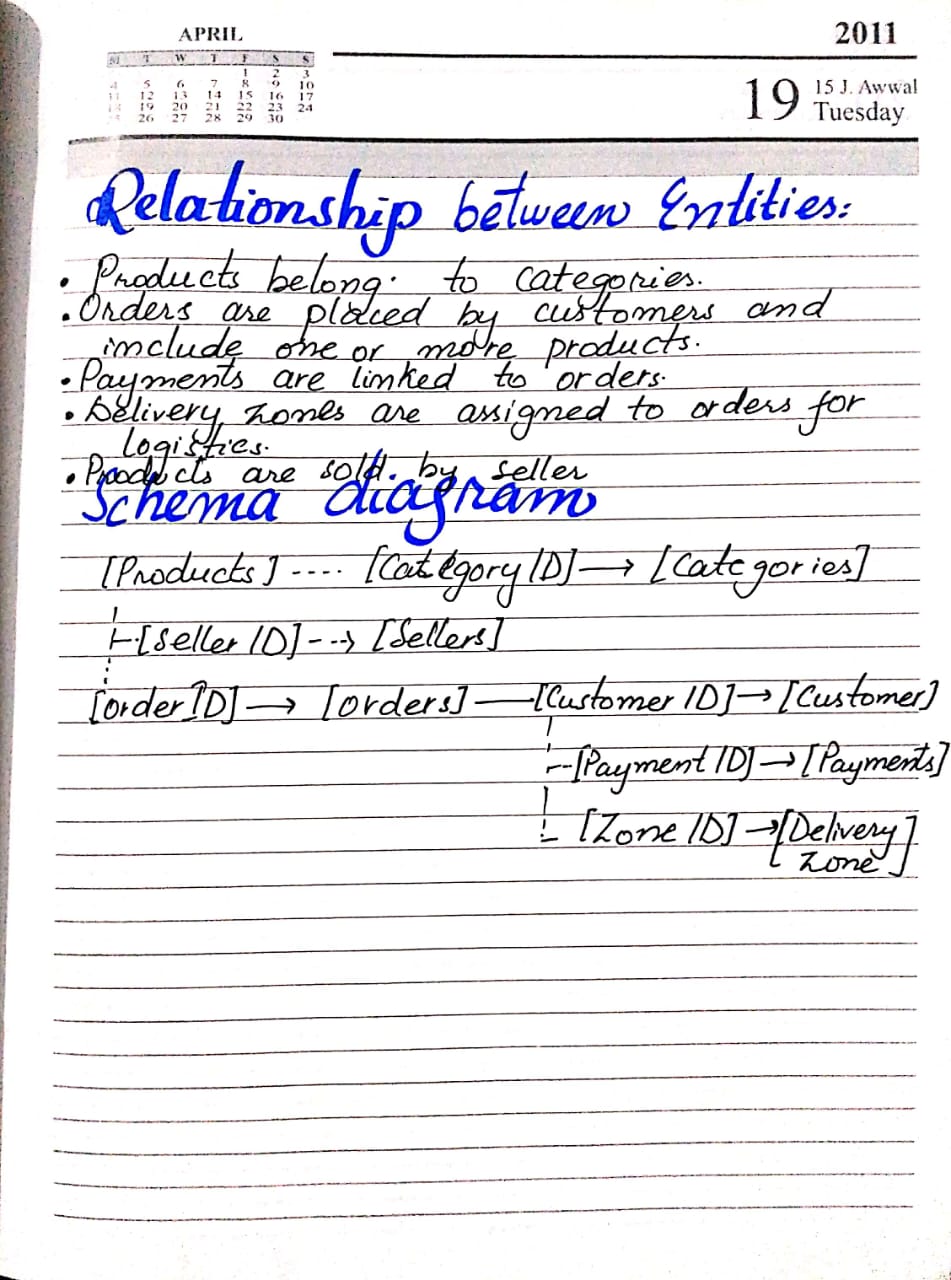 APRIL
2011
M T W T F S S
1 2 3
4 5 6 7 8 9 10
11 12 13 14 15 16 17
18 19 20 21 22 23 24
25 26 27 28 29 30
19 15 J. Awwal
Tuesday
Relationship between Entities:
• Products belong to categories.
• Orders are placed by customers and
include one or more products.
• Payments are linked to orders.
• Delivery zones are assigned to orders for
logistics.
• Products are sold by seller
Schema diagram
[Products] ---- [Category ID] → [Categories]
[Seller ID] --→ [Sellers]
[order ID] → [orders] — [Customer ID] → [Customer]
[Payment ID] → [Payments]
[Zone ID] → [Delivery
Zone]